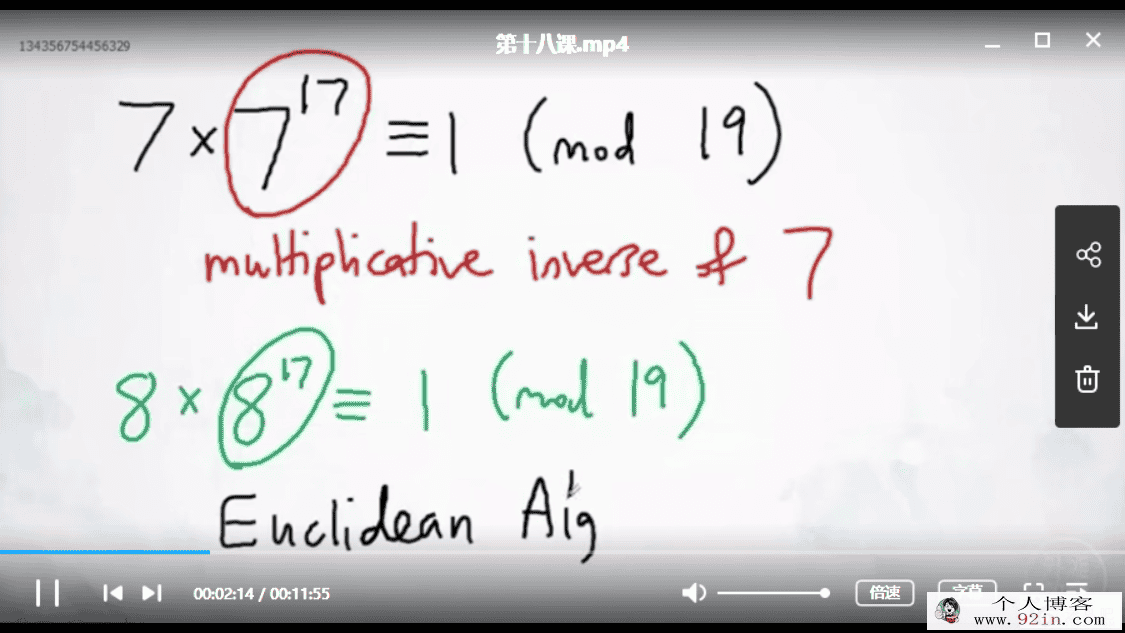 134356754456329
第十八课.mp4
7 × 7^17 ≡ 1 (mod 19)
multiplicative inverse of 7
8 × 8^17 ≡ 1 (mod 19)
Euclidean Alg
00:02:14 / 00:11:55
倍速
字幕
个人博客
www.92in.com